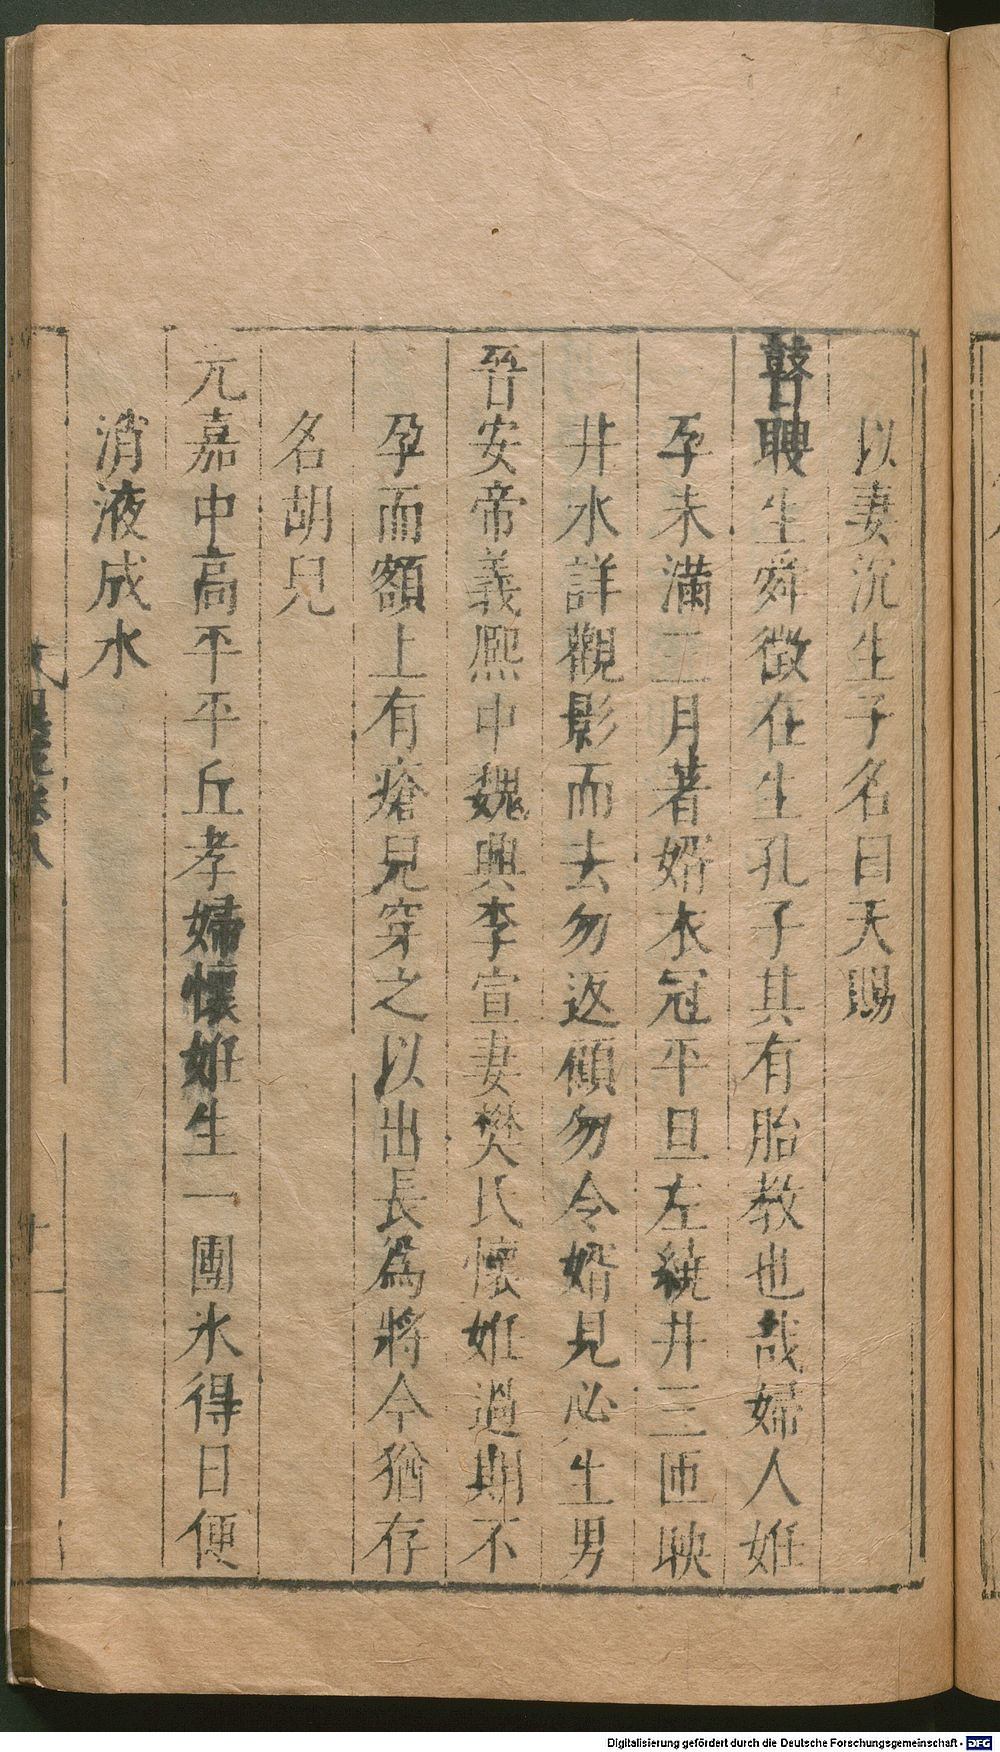 以妻沉生子名曰天賜
瞽瞍生舜徵在生孔子其有胎教也哉婦人姙
孕未滿三月著婿衣冠平旦左繞井三匝映
井水詳觀影而去勿返顧勿令婿見必生男
晉安帝義熙中魏興李宣妻樊氏懷姙過期不
孕而額上有瘡兒穿之以出長爲將今猶存
名胡兒
元嘉中高平平丘孝婦懷姙生一團氷得日便
消液成水
卷八
十一
Digitalisierung gefördert durch die Deutsche Forschungsgemeinschaft - DFG